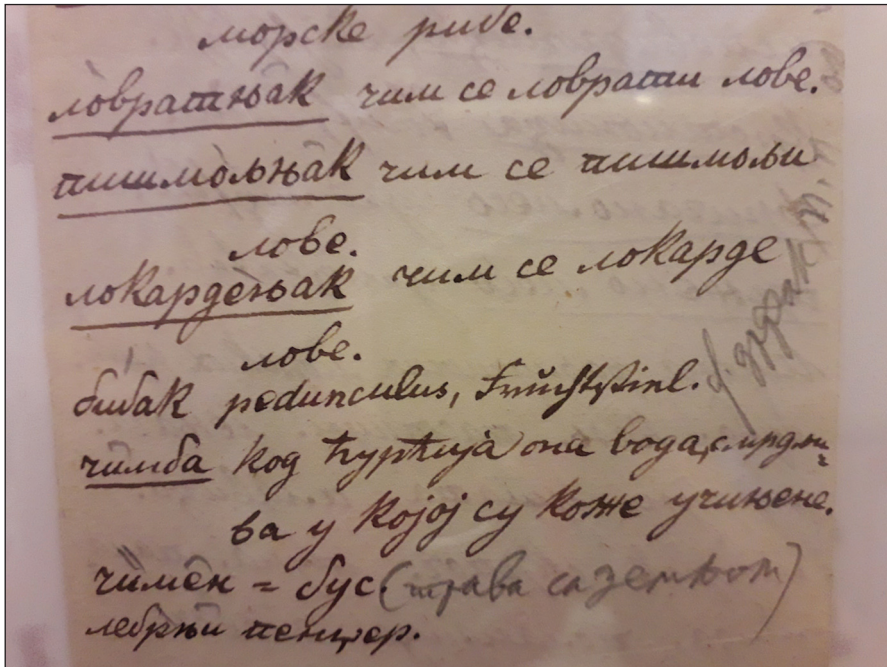 морске рибе.
ловратњак чим се ловрати лове.
пишмољњак чим се пишмољи
лове.
локардењак чим се локарде
лове.
бибак pedunculus, Fruchtstiel.
чимба код ћурћија она вода, смрдљи-
ва у којој су коже учињене.
чимен = бус. (трава са земљом)
пенџер.